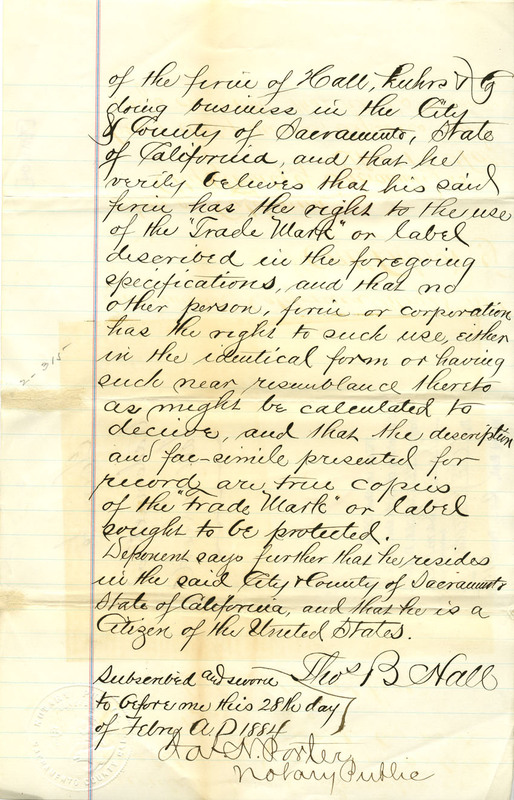 of the firm of Hall, Luhrs & Co
doing business in the City
& County of Sacramento, State
of California, and that he
verily believes that his said
firm has the right to the use
of the "Trade Mark" or label
described in the foregoing
specifications, and that no
other person, firm or corporation
has the right to such use, either
in the identical form or having
such near resemblance thereto
as might be calculated to
decieve, and that the description
and fac-simile presented for
record, are true copies
of the "Trade Mark" or label
sought to be protected.
Deponent says further that he resides
in the said City & County of Sacramento
State of California, and that he is a
Citizen of the United States.
Subscribed and sworn Thos B Hall
to before me this 28th day
of Febry A D 1884
N. Porter
Notary Public
2-315